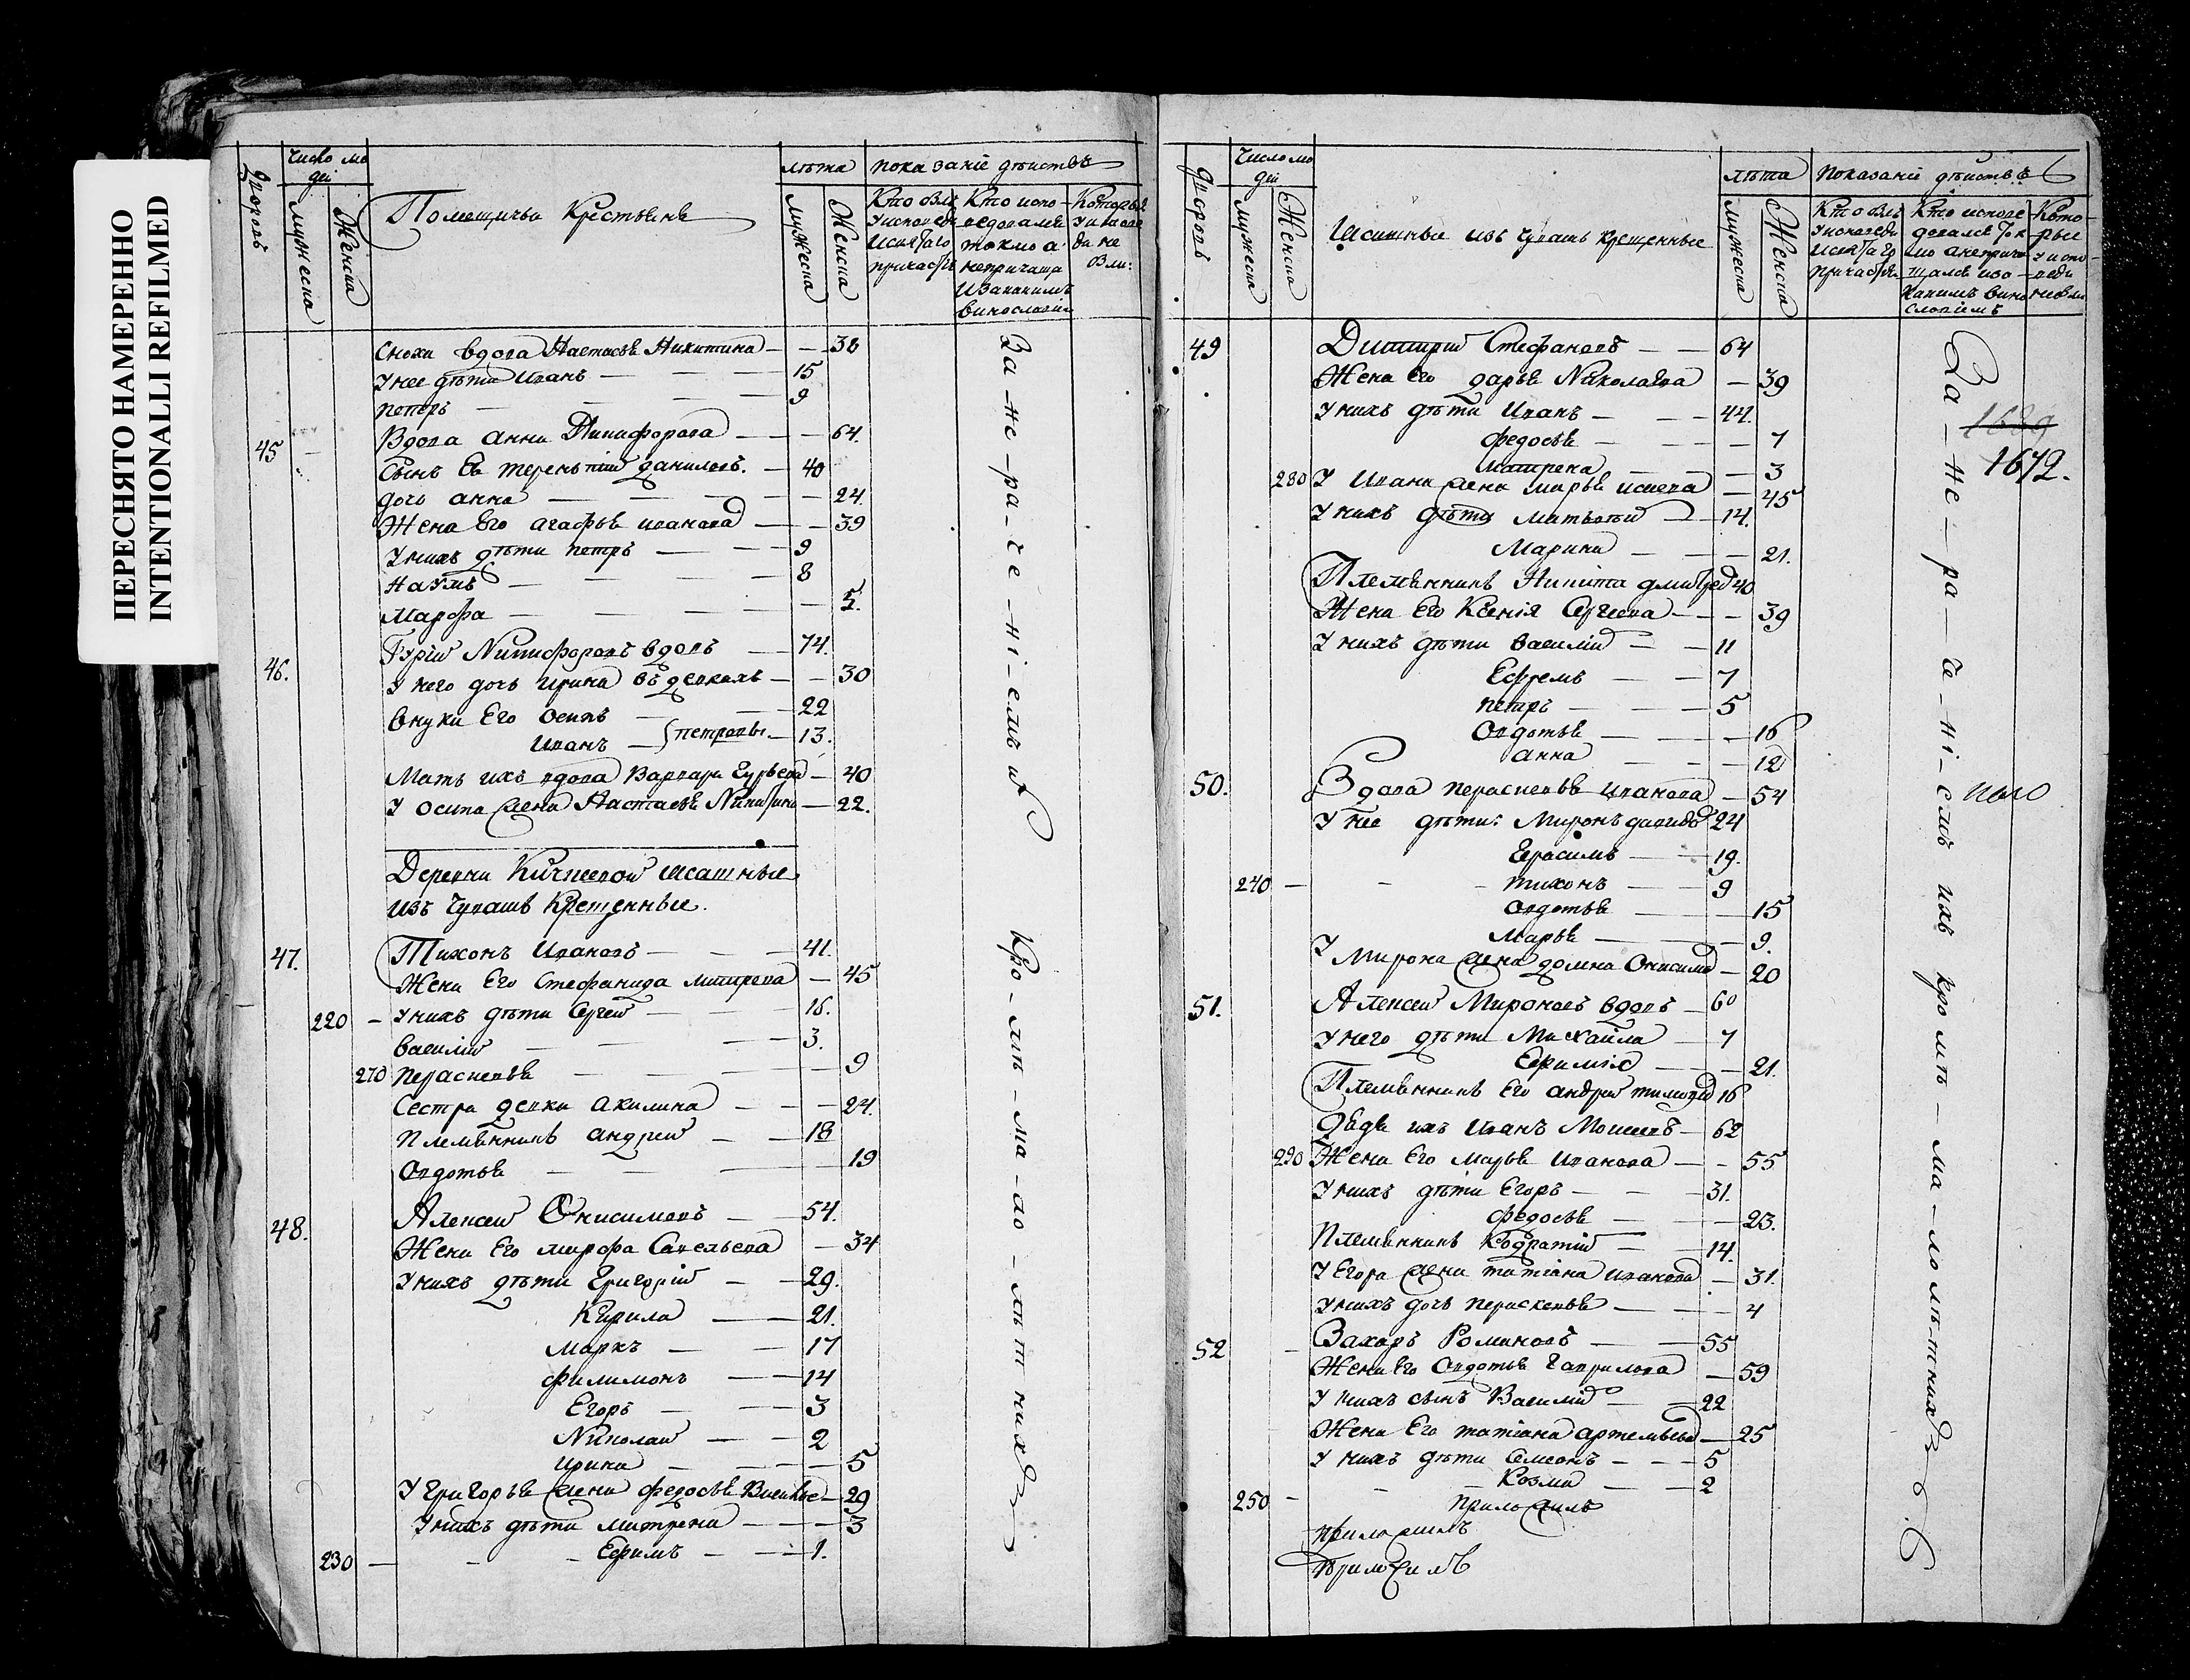 ПЕРЕСНЯТО НАМЕРЕННО
INTENTIONALLI REFILMED
Число лю
дей
Дворовъ
мужеска
Женска
Помещичьи Крестьяне
лѣта
мужеска
Женска
показание дѣиствъ
Кто былъ
у исповеди
и святаго
причастья
Кто испо-
ведовался
токмо а
непричаща
и за каким
винословие
Которые
у испове
ди не
были:
Сноха вдова Настасья Никитина — 38
У нее дѣти Иванъ — 15
петръ — 9
45 Вдова анна Никифорова — 64.
Сынъ Ея терентий данилов. — 40
дочь анна — 24.
Жена Его агафья иванова — 39
У нихъ дѣти петръ — 9
Наумъ — 8
Марфа — 5.
46. Гурий Никифоровъ вдовъ — 74.
У него дочь ирина въ девкахъ — 30
Внуки Его осипъ — 22
Иванъ — } петровы — 13.
Мать ихъ вдова Варвара Гурьева — 40
У осипа жена Настасья Никитина — 22.
Деревни Кичкеевой ясашные
изъ Чувашъ Крещенные.
47. Тихонъ Ивановъ — 41.
Жена Его Стефанида — 45
220 — У нихъ дѣти Сергей — 16.
Василий — 3.
270 параскевья — 9
Сестра девка акилина — 24.
племянникъ андрей — 18
овдотья — 19
48. Алексей Онисимовъ — 54.
Жена Его марфа Савельева — 34
У нихъ дѣти Григорий — 29.
Кирила — 21.
Маркъ — 17
филимонъ — 14
Егоръ — 3
Николай — 2
ирина — 5
У Григорья жена федосья Василье — 29
У нихъ дѣти матрена — 3
230 — Ефимъ — 1.
За-не-ра-че-ні-емъ их
Кро-мѣ-ма-ло-лѣт нихъ
Дворовъ
Число лю
дей
мужеска
Женска
Ясашные изъ чувашъ крещенные
лѣта
мужеска
Женска
Показаніе дѣиствъ
Кто былъ
у исповеди
и святаго
причастья
Кто испове
довался ток
мо а неприча
щался и за
каким вино
словіемъ
Кото-
рые
у испо-
веди
небыли
1689
1672.
49 Дмитрий Стефановъ — 64
Жена Его дарья Николаева — 39
У нихъ дѣти Иванъ — 44.
федосья — 7
матрена — 3
280 У Ивана жена марья — 45
У нихъ дѣти Матвей — 14.
Марина — 21.
Племянникъ Никита дмитрев 40
Жена Его Ксенія Сергеева — 39
У нихъ дѣти василий — 11
Ефремъ — 7
петръ — 5
Овдотья — 16
анна — 12
50. Вдова параскевья иванова — 54
У нее дѣти: Миронъ давидов 24
Герасимъ — 19.
240 — тихонъ — 9
овдотья — 15
Марья — 9.
У Мирона жена домна Онисимов — 20
51. Алексей Мироновъ вдовъ — 60
У него дѣти Михайла — 7
Ефимія — 21.
Племянникъ Его андрей тимофев 16
Дядя ихъ Иванъ Моисеевъ — 62
290 Жена Его марья Иванова — 55
У нихъ дѣти Егоръ — 31.
федосья — 23.
Племянникъ Кодратий — 14.
У Егора жена татіана иванова — 31.
У нихъ дочь параскевья — 4
52 Захаръ Романовъ — 55
Жена Его Овдотья Гаврилова — 59
У нихъ сынъ Василий — 22
Жена Его татіана артемьева — 25
У нихъ дѣти Семенъ — 5
Козма — 2
250 — приложилъ
приложилъ
приложилъ
За-не-ра-че-ні-емъ ихъ кромѣ-ма-лолѣтнихъ